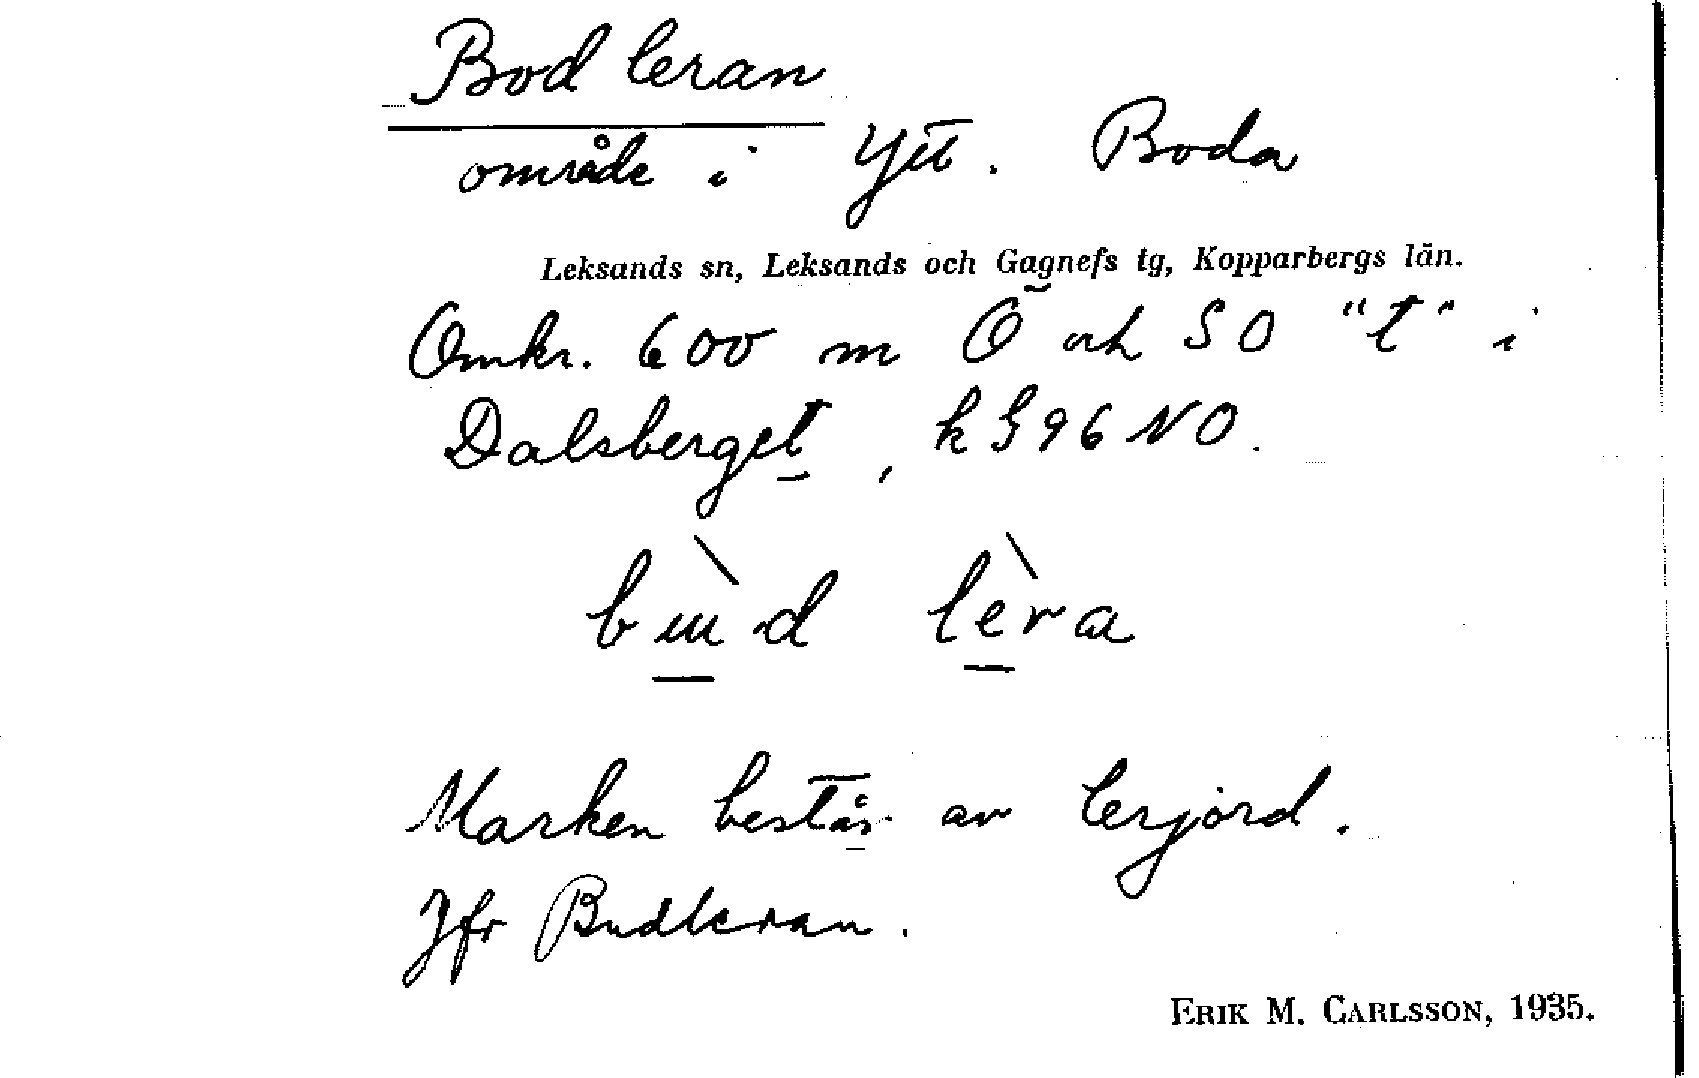 Bodleran
område i Ytt. Boda
Leksands sn, Leksands och Gagnefs tg, Kopparbergs län.
Omkr. 600 m Ö och SO "t" i
Dalsberget, k § 96 NO.
bɯ̀d lèra
Marken består av lerjord.
Jfr Budleran.
ERIK M. CARLSSON, 1935.